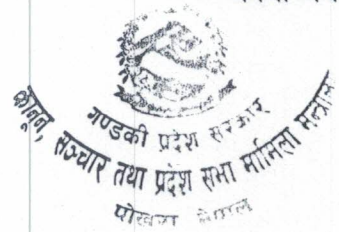 गण्डकी प्रदेश सरकार
कानून, सञ्चार तथा प्रदेश सभा मामिला मन्त्रालय
पोखरा नेपाल